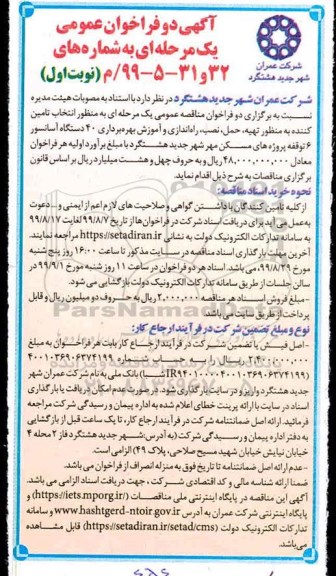 آگهی دو فراخوان عمومی
یک مرحله‌ای به شماره‌های
۳۲ و ۳۱-۵-۹۹/م (نوبت اول)
شرکت عمران
شهر جدید هشتگرد
شرکت عمران شهر جدید هشتگرد در نظر دارد با استناد به مصوبات هیئت مدیره
نسبت به برگزاری دو فراخوان مناقصه عمومی یک مرحله ای به منظور انتخاب تامین
کننده به منظور تهیه، حمل، نصب، راه‌اندازی و آموزش بهره‌برداری ۴۰ دستگاه آسانسور
۶ توقفه پروژه های مسکن مهر شهر جدید هشتگرد با مبلغ برآورد اولیه هر فراخوان
معادل ۴۸,۰۰۰,۰۰۰,۰۰۰ ریال و به حروف چهل و هشت میلیارد ریال بر اساس قانون
برگزاری مناقصات به شرح ذیل اقدام نماید.
نحوه خرید اسناد مناقصه:
از کلیه تامین کنندگان با داشتن گواهی و صلاحیت های لازم اعم از ایمنی و ... دعوت
به عمل می آید برای دریافت اسناد شرکت در فراخوان‌ها از تاریخ ۹۹/۸/۷ لغایت ۹۹/۸/۱۷
به سامانه تدارکات الکترونیک دولت به نشانی https://setadiran.ir مراجعه نمایند.
آخرین مهلت بارگذاری اسناد مناقصه در سایت مذکور تا ساعت ۱۶:۰۰ روز پنج شنبه
مورخ ۹۹/۸/۲۹ می باشد. اسناد هر دو فراخوان در ساعت ۱۱ روز شنبه مورخ ۹۹/۹/۱ در
سالن جلسات از طریق سامانه تدارکات الکترونیک دولت بازگشایی می شود.
-مبلغ فروش اسناد هر مناقصه ۲,۰۰۰,۰۰۰ ریال به حروف دو میلیون ریال و قابل
پرداخت از طریق سایت می باشد
نوع و مبلغ تضمین شرکت در فرآیند ارجاع کار:
-اصل فیش یا تضمین شرکت در فرآیند ارجاع کار بابت هر فراخوان به مبلغ
۲,۴۰۰,۰۰۰,۰۰۰ ریال را به حساب شماره ۴۰۰۱۰۳۶۹۰۶۳۷۴۱۹۹
بانک ملی به نام شرکت عمران شهر
جدید هشتگرد واریز و در سایت بارگذاری شود. در صورت عدم امکان دریافت یا بارگذاری
اسناد در سایت با ارائه پرینت خطای اعلام شده به اداره پیمان و رسیدگی شرکت مراجعه
فرمائید. ارائه اصل ضمانتنامه شرکت در فرآیند ارجاع کار، تا یک ساعت قبل از بازگشایی
به دفتر اداره پیمان و رسیدگی شرکت (به آدرس: شهر جدید هشتگرد فاز ۲ محله ۴
خیابان نیایش خیابان شهید مسیح صلاحی، پلاک ۴۹) الزامی است.
-عدم ارائه اصل ضمانتنامه تا تاریخ فوق به منزله انصراف از فراخوان می باشد.
ضمنا ارائه شناسه مالی و کد اقتصادی شرکت، جهت دریافت اسناد الزامی می باشد.
آگهی این مناقصه در پایگاه اینترنتی ملی مناقصات (https://iets.mporg.ir/) و
پایگاه اینترنتی شرکت عمران به آدرس www.hashtgerd-ntoir.gov.ir و سامانه
تدارکات الکترونیک دولت (https://setadiran.ir/setad/cms) قابل مشاهده
می‌باشد.